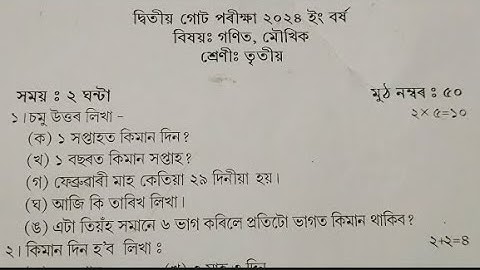 দ্বিতীয় গোট পৰীক্ষা ২০২৪ ইং বৰ্ষ
বিষয়ঃ গণিত, মৌখিক
শ্ৰেণীঃ তৃতীয়
সময় ঃ ২ ঘন্টা মুঠ নম্বৰ ঃ ৫০
১। চমু উত্তৰ লিখা - ২×৫=১০
(ক) ১ সপ্তাহত কিমান দিন?
(খ) ১ বছৰত কিমান সপ্তাহ?
(গ) ফেব্ৰুৱাৰী মাহ কেতিয়া ২৯ দিনীয়া হয়।
(ঘ) আজি কি তাৰিখ লিখা।
(ঙ) এটা তিয়ঁহ সমানে ৬ ভাগ কৰিলে প্ৰতিটো ভাগত কিমান থাকিব?
২। কিমান দিন হ'ব লিখা ঃ ২+২=৪